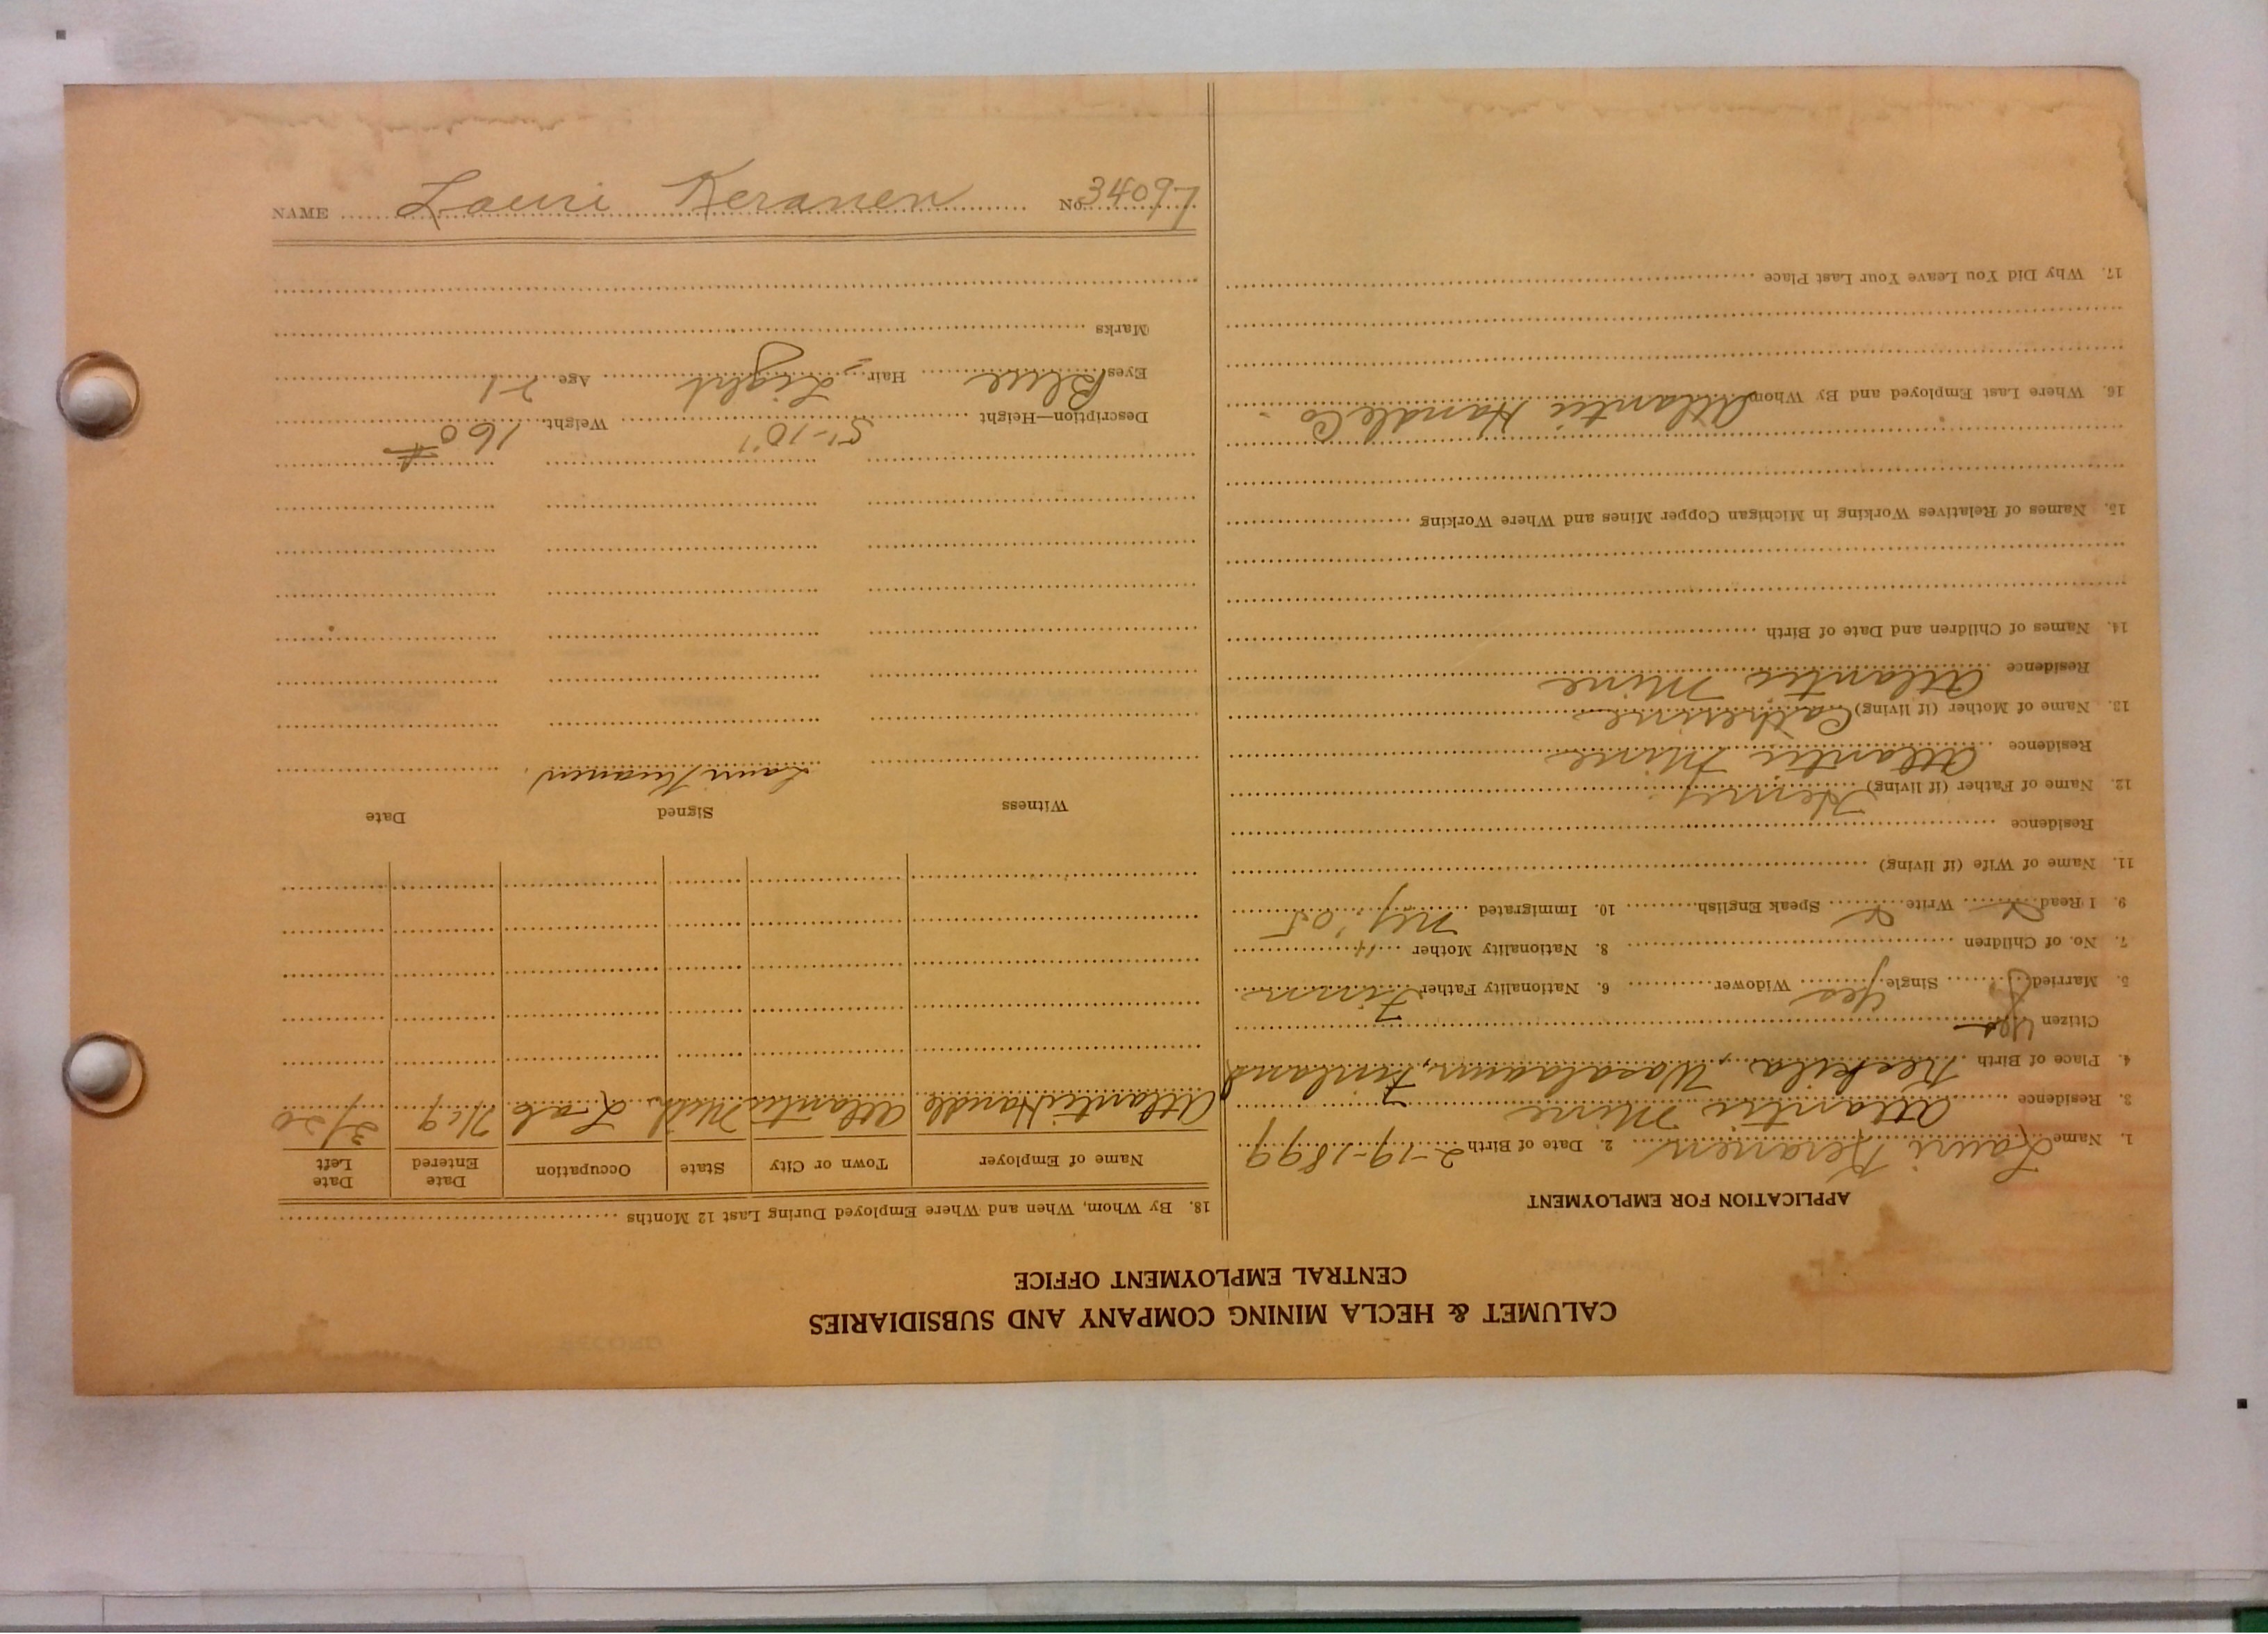 CALUMET & HECLA MINING COMPANY AND SUBSIDIARIES
CENTRAL EMPLOYMENT OFFICE
APPLICATION FOR EMPLOYMENT
1. Name Lauri Keranen 2. Date of Birth 2-19-1899
3. Residence Atlantic Mine
4. Place of Birth Finland
Citizen Yes
5. Married Single Yes Widower 6. Nationality Father Finn
7. No. of Children 8. Nationality Mother "
9. I Read Write Speak English 10. Immigrated '05
11. Name of Wife (if living)
Residence
12. Name of Father (if living) Henry
Residence Atlantic Mine
13. Name of Mother (if living) Catherine
Residence Atlantic Mine
14. Names of Children and Date of Birth
15. Names of Relatives Working in Michigan Copper Mines and Where Working
16. Where Last Employed and By Whom Atlantic Handle Co
17. Why Did You Leave Your Last Place
18. By Whom, When and Where Employed During Last 12 Months
Name of Employer Town or City State Occupation Date Entered Date Left
Atlantic Handle Atlantic Mich Lab 7/19 3/20
Witness Signed Date
Lauri Keranen
Description—Height 5'-10" Weight 160 #
Eyes Blue Hair Light Age 21
Marks
NAME Lauri Keranen No. 34097